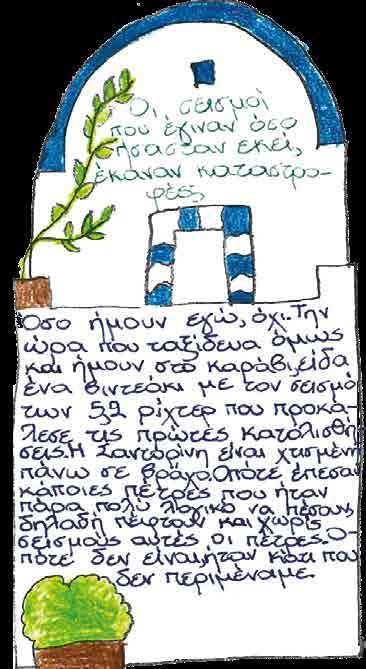 Οι σεισμοί
που έγιναν όσο
ήσασταν εκεί,
έκαναν καταστρο-
φές;
Όσο ήμουν εγώ, όχι. Την
ώρα που ταξίδευα όμως
και ήμουν στο καράβι, είδα
ένα βιντεάκι με τον σεισμό
των 5,2 ρίχτερ που προκά-
λεσε τις πρώτες κατολισθή
σεις. Η Σαντορίνη είναι χτισμένη
πάνω σε βράχο. Οπότε έπεσαν
κάποιες πέτρες που ήταν
πάρα πολύ λογικό να πέσουν,
δηλαδή πέφτουν και χωρίς
σεισμούς αυτές οι πέτρες. Ο-
πότε δεν είναι, ήταν κάτι που
δεν περιμέναμε.